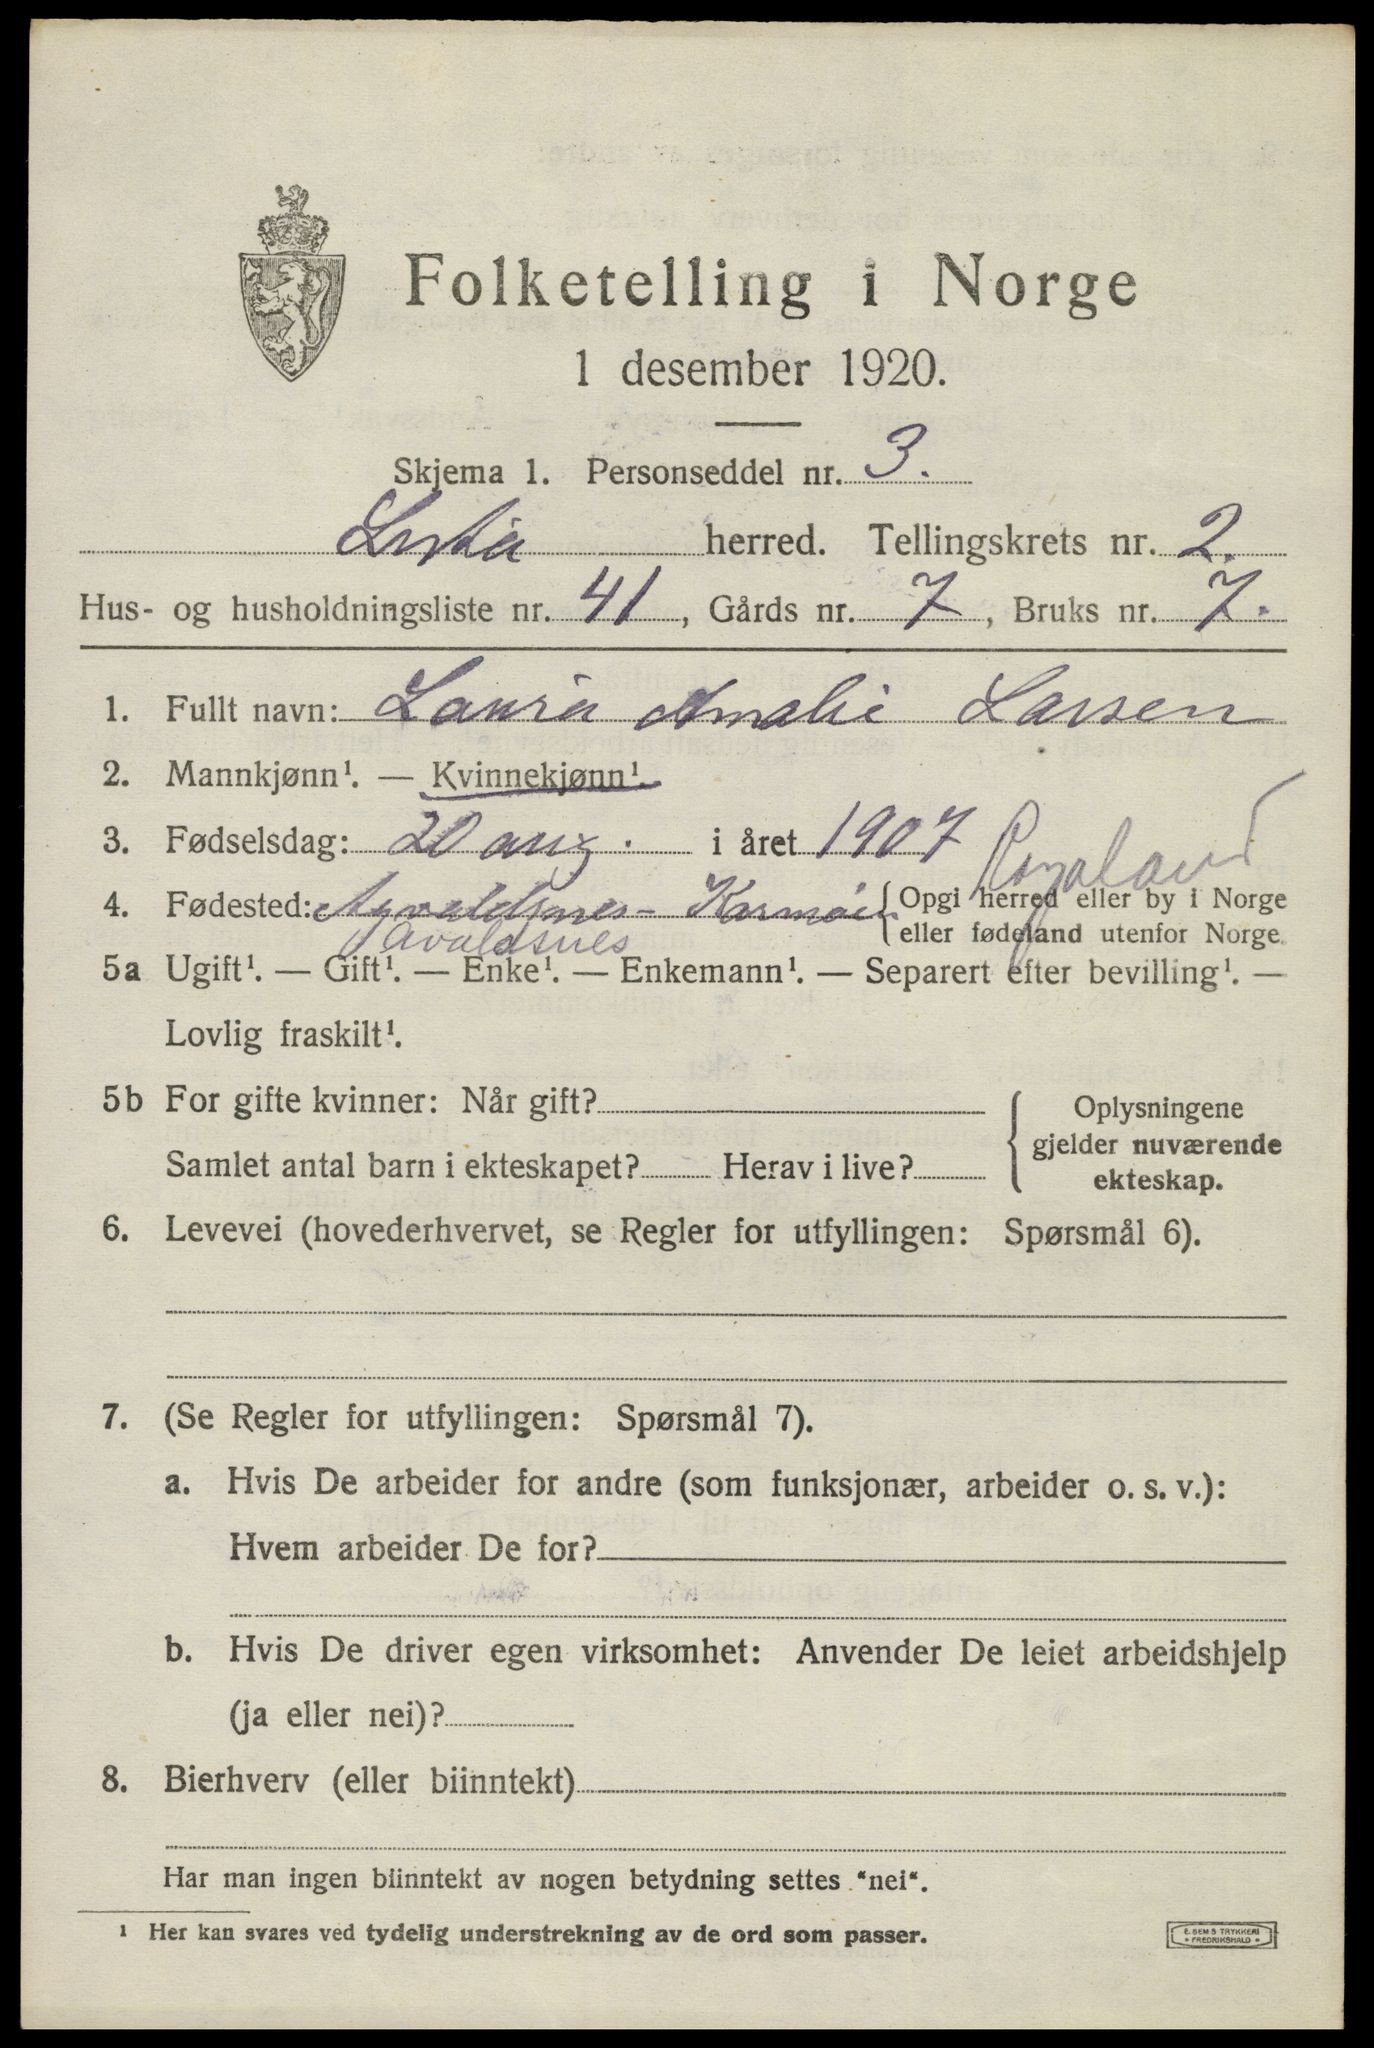 Folketelling i Norge
1 desember 1920.
Skjema 1. Personseddel nr. 3.
herred. Tellingskrets nr. 2.
Hus- og husholdningsliste nr. 41, Gårds nr. 7, Bruks nr. 7.
1. Fullt navn: Laura Amalie Larsen
2. Mannkjønn¹. — Kvinnekjønn¹.
3. Fødselsdag: 20 aug. i året 1907 Rogaland
4. Fødested: Agvaldsnes - Karmøi {Opgi herred eller by i Norge
eller fødeland utenfor Norge.
Avaldsnes
5a Ugift¹. — Gift¹. — Enke¹. — Enkemann¹. — Separert efter bevilling¹. —
Lovlig fraskilt¹.
5b For gifte kvinner: Når gift?
Samlet antal barn i ekteskapet? Herav i live?
{Oplysningene
gjelder nuværende
ekteskap.
6. Levevei (hovederhvervet, se Regler for utfyllingen: Spørsmål 6).
7. (Se Regler for utfyllingen: Spørsmål 7).
a. Hvis De arbeider for andre (som funksjonær, arbeider o. s. v.):
Hvem arbeider De for?
b. Hvis De driver egen virksomhet: Anvender De leiet arbeidshjelp
(ja eller nei)?
8. Bierhverv (eller biinntekt)
Har man ingen biinntekt av nogen betydning settes “nei“.
¹ Her kan svares ved tydelig understrekning av de ord som passer.
E. SEMS TRYKKERI
FREDRIKSHALD